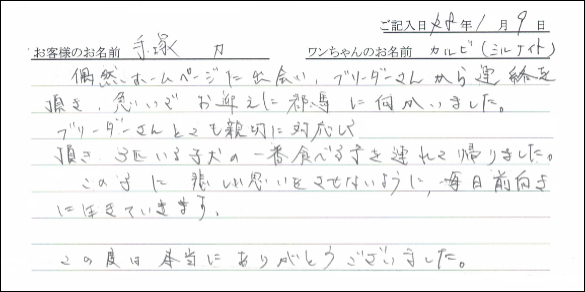 ご記入日 28年1月9日
お客様のお名前 手塚 力 ワンちゃんのお名前 カルビ(ミルナイト)
偶然ホームページに出会い、ブリーダーさんから連絡を
頂き、急いでお迎えに群馬に向かいました。
ブリーダーさんとても親切に対応し
頂き 3匹いる子犬の一番食べる子を連れて帰りました。
この子に悲しい思いをさせないように、毎日前向き
に生きていきます。
この度は本当にありがとうございました。